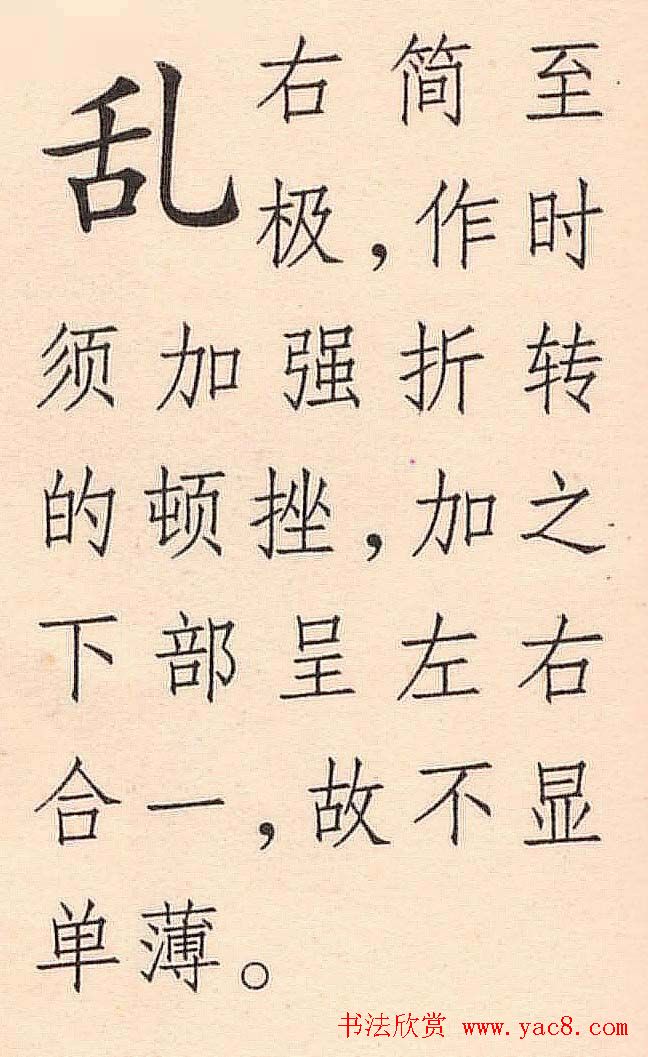 乱
右简至
极，作时
须加强折转
的顿挫，加之
下部呈左右
合一，故不显
单薄。
书法欣赏 www.yac8.com